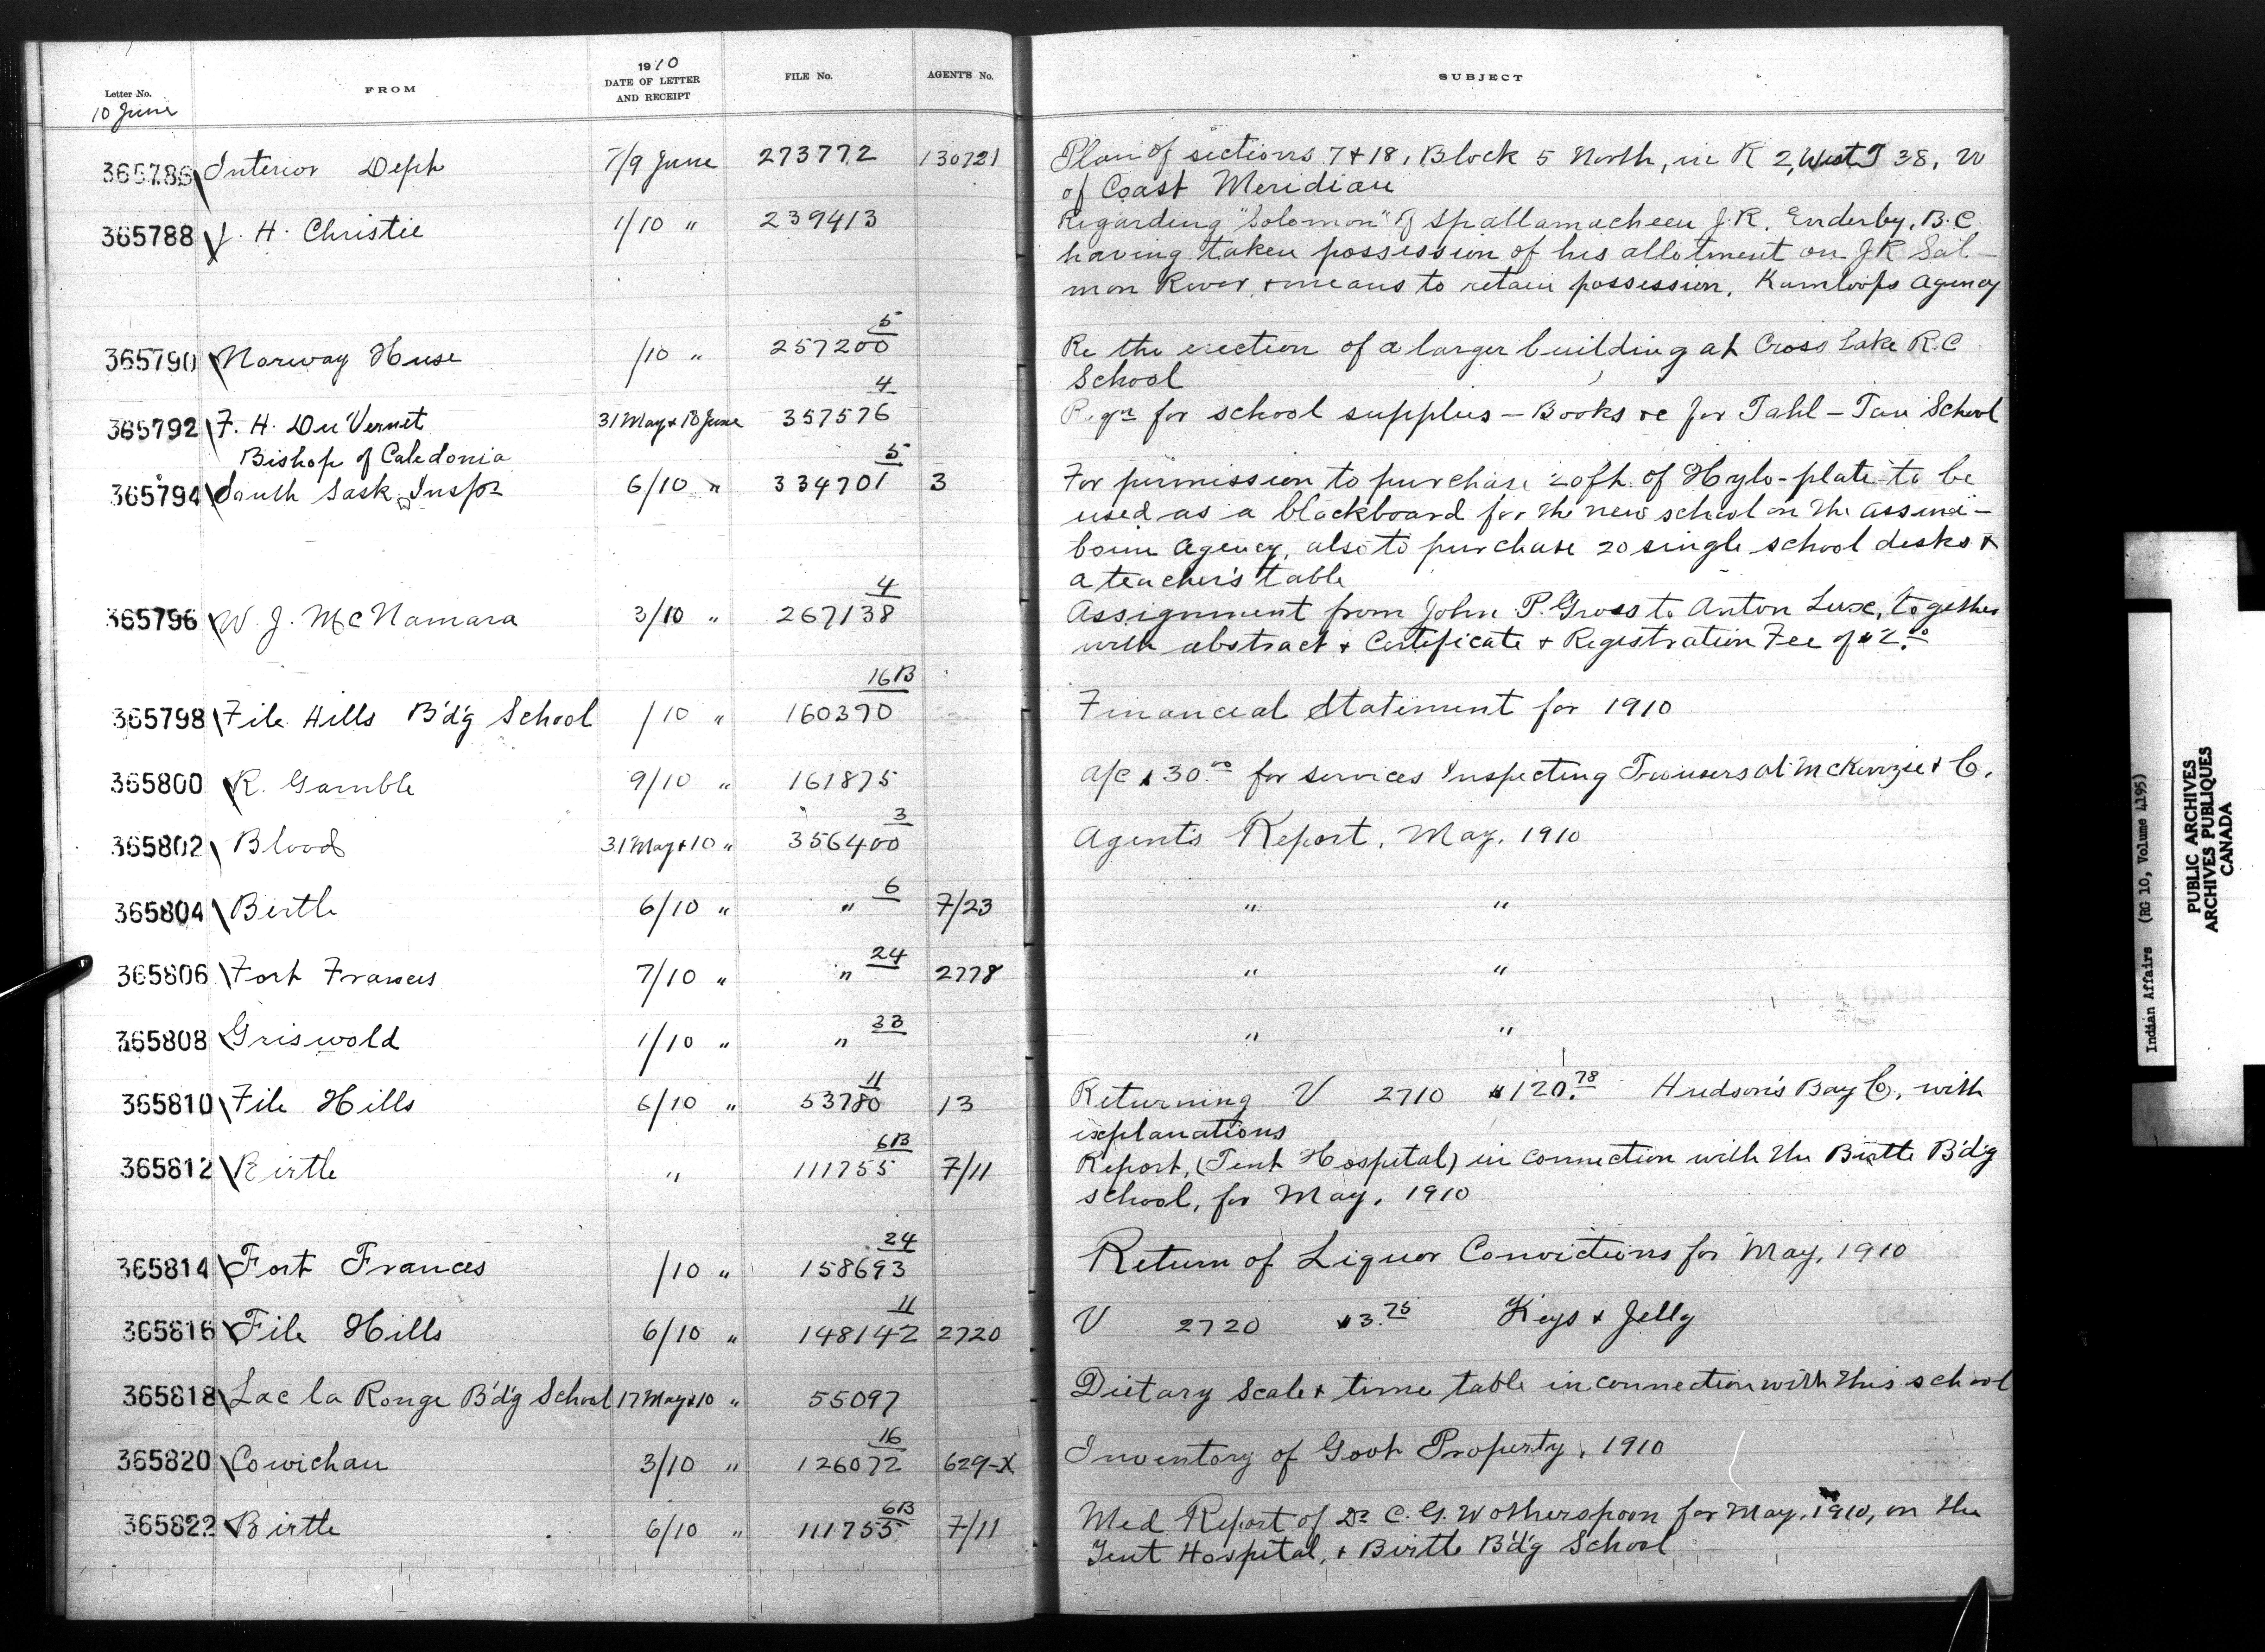 Letter No.
FROM
1910
DATE OF LETTER
AND RECEIPT
FILE No.
AGENT'S No.
SUBJECT
10 June
365786 Interior Dept 7/9 June 273772 130721 Plan of sections 7 & 18, Block 5 North, in R 2, West T 38, W
of Coast Meridian
365788 J. H. Christie 1/10 " 239413 Regarding "Solomon" of Spallamacheen J.R. Enderby, B.C
having taken possession of his allotment on J R Sal-
mon River & means to retain possession. Kamloops Agency
365790 Norway Huse /10 " 257200 5 Re the erection of a larger building at Cross Lake R.C
School
365792 F. H. Du Vernet 31 May & 10 June 357576 4 Reqn for school supplies - Books &c for Tahl-Tan School
Bishop of Caledonia
365794 South Sask Inspr 6/10 " 334701 5 3 For permission to purchase 20 ft. of Hylo-plate to be
used as a blackboard for the new school on the Assini-
boine Agency, also to purchase 20 single school desks &
a teacher's table
365796 W. J. McNamara 3/10 " 267138 4 Assignment from John P. Gross to Anton Luse, together
with abstract & Certificate & Registration Fee of $2.00
365798 File Hills B'd'g School /10 " 160390 16B Financial Statement for 1910
365800 R. Gamble 9/10 " 161875 a/c $30.00 for services Inspecting Trousers at McKenzie & Co.
365802 Blood 31 May & 10 " 356400 3 Agent's Report, May, 1910
365804 Birtle 6/10 " " 6 7/23 " "
365806 Fort Frances 7/10 " " 24 2778 " "
365808 Griswold 1/10 " " 33 " "
365810 File Hills 6/10 " 53780 11 13 Returning V 2710 $120.78 Hudson's Bay Co. with
explanations
365812 Birtle " 111755 6B 7/11 Report, (Tent Hospital) in connection with the Birtle B'd'g
school, for May, 1910
365814 Fort Frances /10 " 158693 24 Return of Liquor Convictions for May, 1910
365816 File Hills 6/10 " 148142 11 2720 V 2720 $3.75 Keys & Jelly
365818 Lac la Ronge B'd'g School 17 May & 10 " 55097 Dietary Scale & time table in connection with this school
365820 Cowichan 3/10 " 126072 16 629-X Inventory of Govt Property, 1910
365822 Birtle 6/10 " 111755 6B 7/11 Med Report of Dr C. G. Wotherspoon for May, 1910, on the
Tent Hospital, & Birtle B'd'g School
Indian Affairs (RG 10, Volume 4195)
PUBLIC ARCHIVES
ARCHIVES PUBLIQUES
CANADA